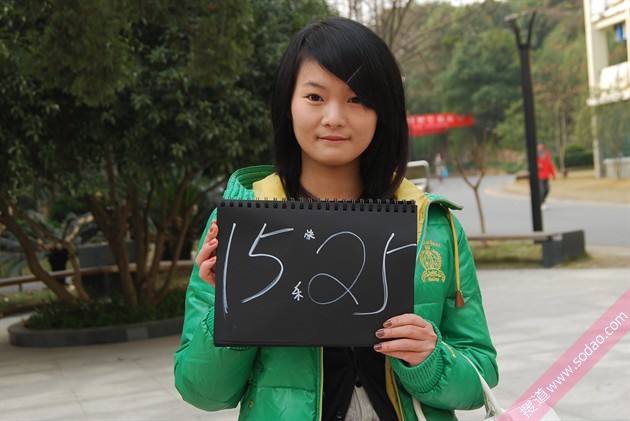 15 25
搜道www.sodao.com